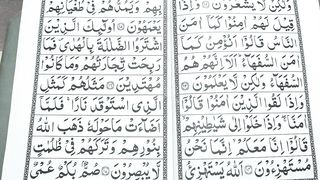 وَلٰكِنْ لَّا يَشْعُرُوْنَ
قِيْلَ لَهُمْ اٰمِنُوْا كَمَاۤ اٰمَنَ
النَّاسُ قَالُوْۤا اَنُؤْمِنُ كَمَاۤ
السُّفَهَآءُ اَلَاۤ اِنَّهُمْ هُمُ
السُّفَهَآءُ وَلٰكِنْ لَّا يَعْلَمُوْنَ
وَاِذَا لَقُوا الَّذِيْنَ اٰمَنُوْا قَالُوْۤا
اٰمَنَّا وَاِذَا خَلَوْا اِلٰى شَيٰطِيْنِهِمْ
قَالُوْۤا اِنَّا مَعَكُمْ اِنَّمَا نَحْنُ
مُسْتَهْزِءُوْنَ اَللّٰهُ يَسْتَهْزِئُ
بِهِمْ وَيَمُدُّهُمْ فِيْ طُغْيَانِهِمْ
يَعْمَهُوْنَ اُولٰٓئِكَ الَّذِيْنَ
اشْتَرَوُا الضَّلٰلَةَ بِالْهُدٰى فَمَا
رَبِحَتْ تِّجَارَتُهُمْ وَمَا كَانُوْا
مُهْتَدِيْنَ مَثَلُهُمْ كَمَثَلِ
الَّذِى اسْتَوْقَدَ نَارًا فَلَمَّاۤ
اَضَآءَتْ مَا حَوْلَهٗ ذَهَبَ اللّٰهُ
بِنُوْرِهِمْ وَتَرَكَهُمْ فِيْ ظُلُمٰتٍ
لَّا يُبْصِرُوْنَ صُمٌّۢ بُكْمٌ عُمْيٌ